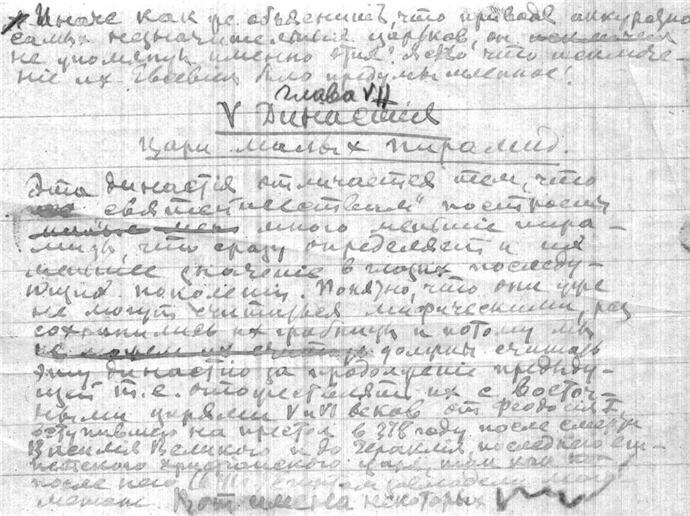 Иначе как же объяснить, что приводя аккуратно
самых незначительных царьков, он
не упомянул именно этих! Ясно, что исключе-
ніе их было предумышленное!
Глава VII
V Династія
Цари малых пирамид.
Эта династія отличается тем, что
построены
много меньшіе пира-
миды, что сразу определяет и их
меньшее значеніе в глазах последу-
ющих поколеній. Понятно, что они уже
не могут считаться мифическими, раз
сохранились их гробницы и потому мы
не можем их считать должны считать
эту династію за продолженіе предыду-
щей т.е. отождествлять их с Восточ-
ными царями V и VI веков от Феодосія I,
вступившего на престол в 378 году после смерти
Василія Великого и до Гераклія, последнего еги-
петского христіанского царя, так как
после него
Вот имена некоторых